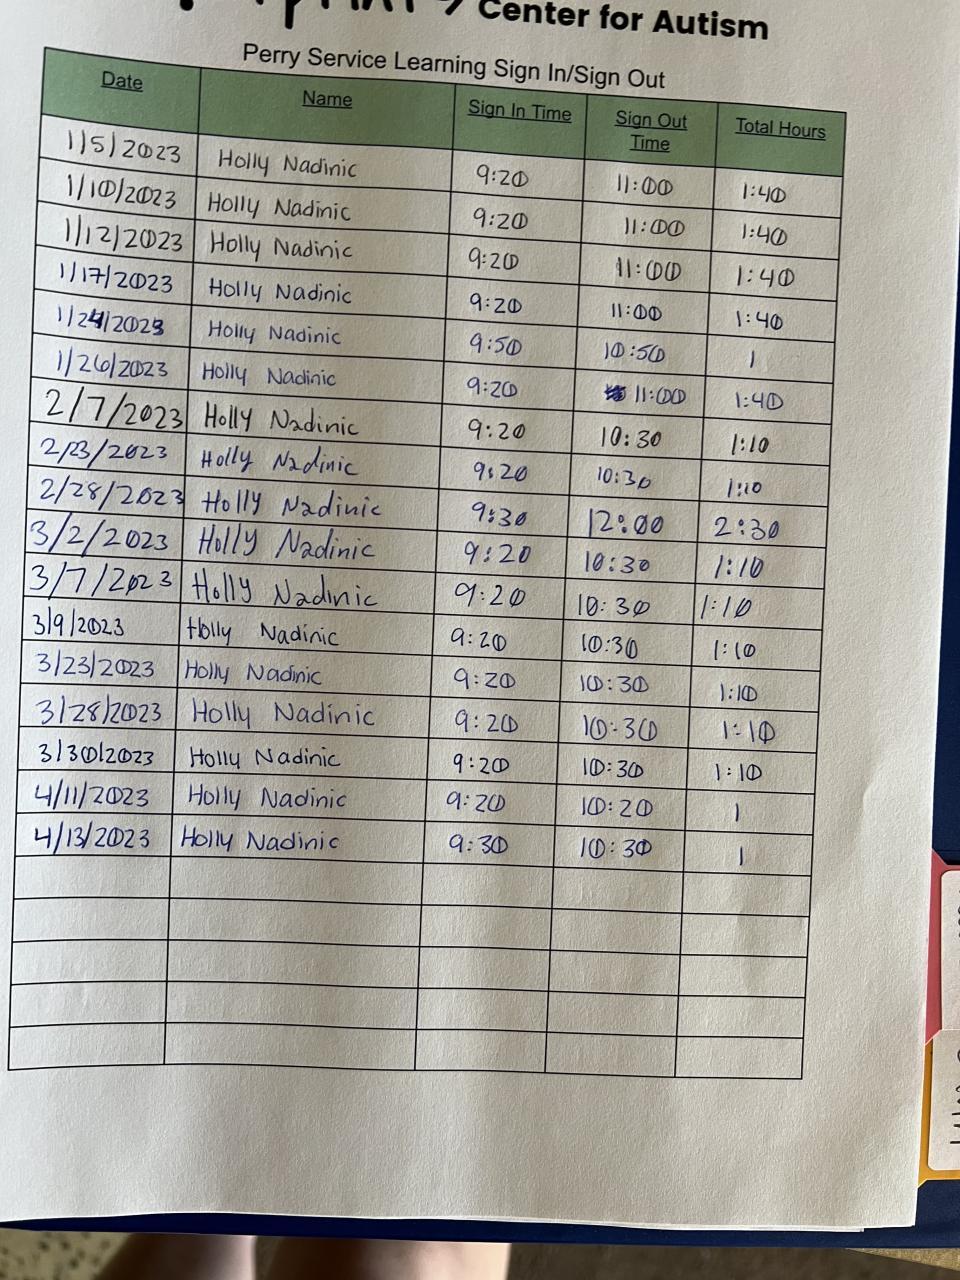 Center for Autism
Perry Service Learning Sign In/Sign Out
Date Name Sign In Time Sign Out Time Total Hours
1/5/2023 Holly Nadinic 9:20 11:00 1:40
1/10/2023 Holly Nadinic 9:20 11:00 1:40
1/12/2023 Holly Nadinic 9:20 11:00 1:40
1/17/2023 Holly Nadinic 9:20 11:00 1:40
1/24/2023 Holly Nadinic 9:50 10:50 1
1/26/2023 Holly Nadinic 9:20 11:00 1:40
2/7/2023 Holly Nadinic 9:20 10:30 1:10
2/23/2023 Holly Nadinic 9:20 10:30 1:10
2/28/2023 Holly Nadinic 9:30 12:00 2:30
3/2/2023 Holly Nadinic 9:20 10:30 1:10
3/7/2023 Holly Nadinic 9:20 10:30 1:10
3/9/2023 Holly Nadinic 9:20 10:30 1:10
3/23/2023 Holly Nadinic 9:20 10:30 1:10
3/28/2023 Holly Nadinic 9:20 10:30 1:10
3/30/2023 Holly Nadinic 9:20 10:30 1:10
4/11/2023 Holly Nadinic 9:20 10:20 1
4/13/2023 Holly Nadinic 9:30 10:30 1